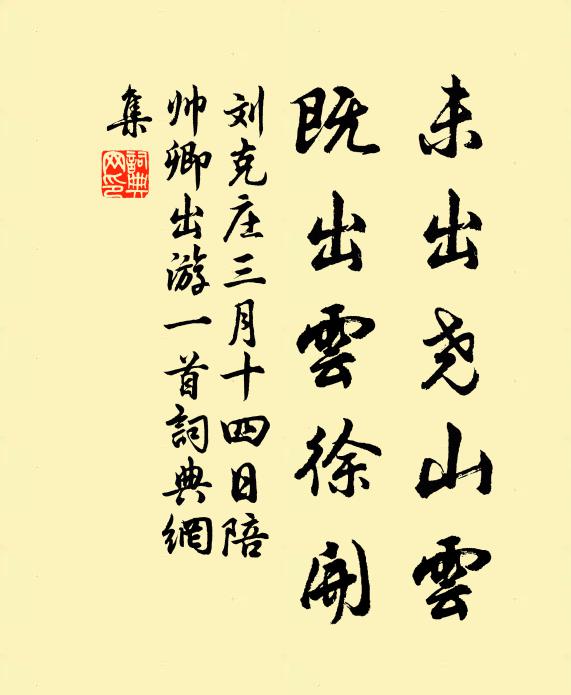 未出尧山雲
既出雲徐開
刘克庄三月十四日陪
帅卿出游一首詞典網
集
詞典網印